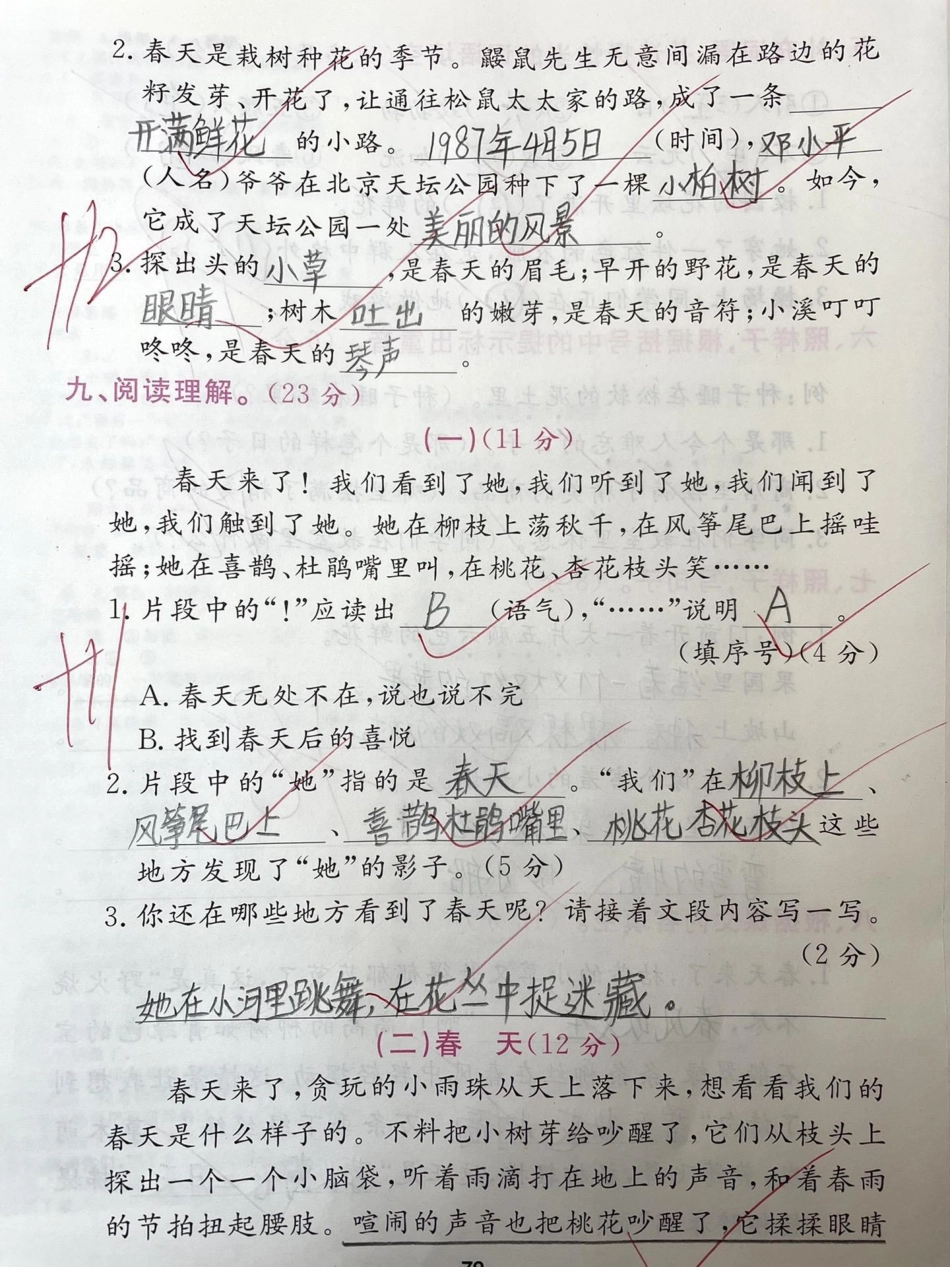 2. 春天是栽树种花的季节。鼹鼠先生无意间漏在路边的花
籽发芽、开花了,让通往松鼠太太家的路,成了一条
开满鲜花 的小路。 1987年4月5日 (时间), 邓小平
(人名)爷爷在北京天坛公园种下了一棵 小柏树 。如今,
它成了天坛公园一处 美丽的风景 。
+12
3. 探出头的 小草 ,是春天的眉毛;早开的野花,是春天的
眼睛 ;树木 吐出 的嫩芽,是春天的音符;小溪叮叮
咚咚,是春天的 琴声 。
九、阅读理解。(23 分)
(一)(11 分)
春天来了! 我们看到了她,我们听到了她,我们闻到了
她,我们触到了她。她在柳枝上荡秋千,在风筝尾巴上摇哇
摇;她在喜鹊、杜鹃嘴里叫,在桃花、杏花枝头笑……
1. 片段中的“!”应读出 B (语气),“……”说明 A 。
(填序号)(4 分)
+11
A. 春天无处不在,说也说不完
B. 找到春天后的喜悦
2. 片段中的“她”指的是 春天 。“我们”在 柳枝上 、
风筝尾巴上 、 喜鹊杜鹃嘴里 、 桃花杏花枝头 这些
地方发现了“她”的影子。(5 分)
3. 你还在哪些地方看到了春天呢? 请接着文段内容写一写。
(2 分)
她在小河里跳舞,在花丛中捉迷藏。
(二)春 天(12 分)
春天来了,贪玩的小雨珠从天上落下来,想看看我们的
春天是什么样子的。不料把小树芽给吵醒了,它们从枝头上
探出一个一个小脑袋,听着雨滴打在地上的声音,和着春雨
的节拍扭起腰肢。喧闹的声音也把桃花吵醒了,它揉揉眼睛